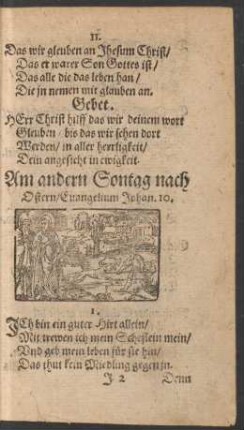 11.
Das wir gleuben an Jhesum Christ/
Das er warer Son Gottes ist/
Das alle die das leben han/
Die jn nemen mit glauben an.
Gebet.
HErr Christ hilff das wir deinem wort
Gleuben / bis das wir sehen dort
Werden / in aller herrligkeit/
Dein angesicht in ewigkeit.
Am andern Sontag nach
Ostern / Euangelium Johan. 10.
1.
ICh bin ein guter Hirt allein/
Mit trewen ich mein Scheflein mein/
Vnd geb mein leben für sie hin/
Das thut kein Miedling gegen jn.
J 2 Denn